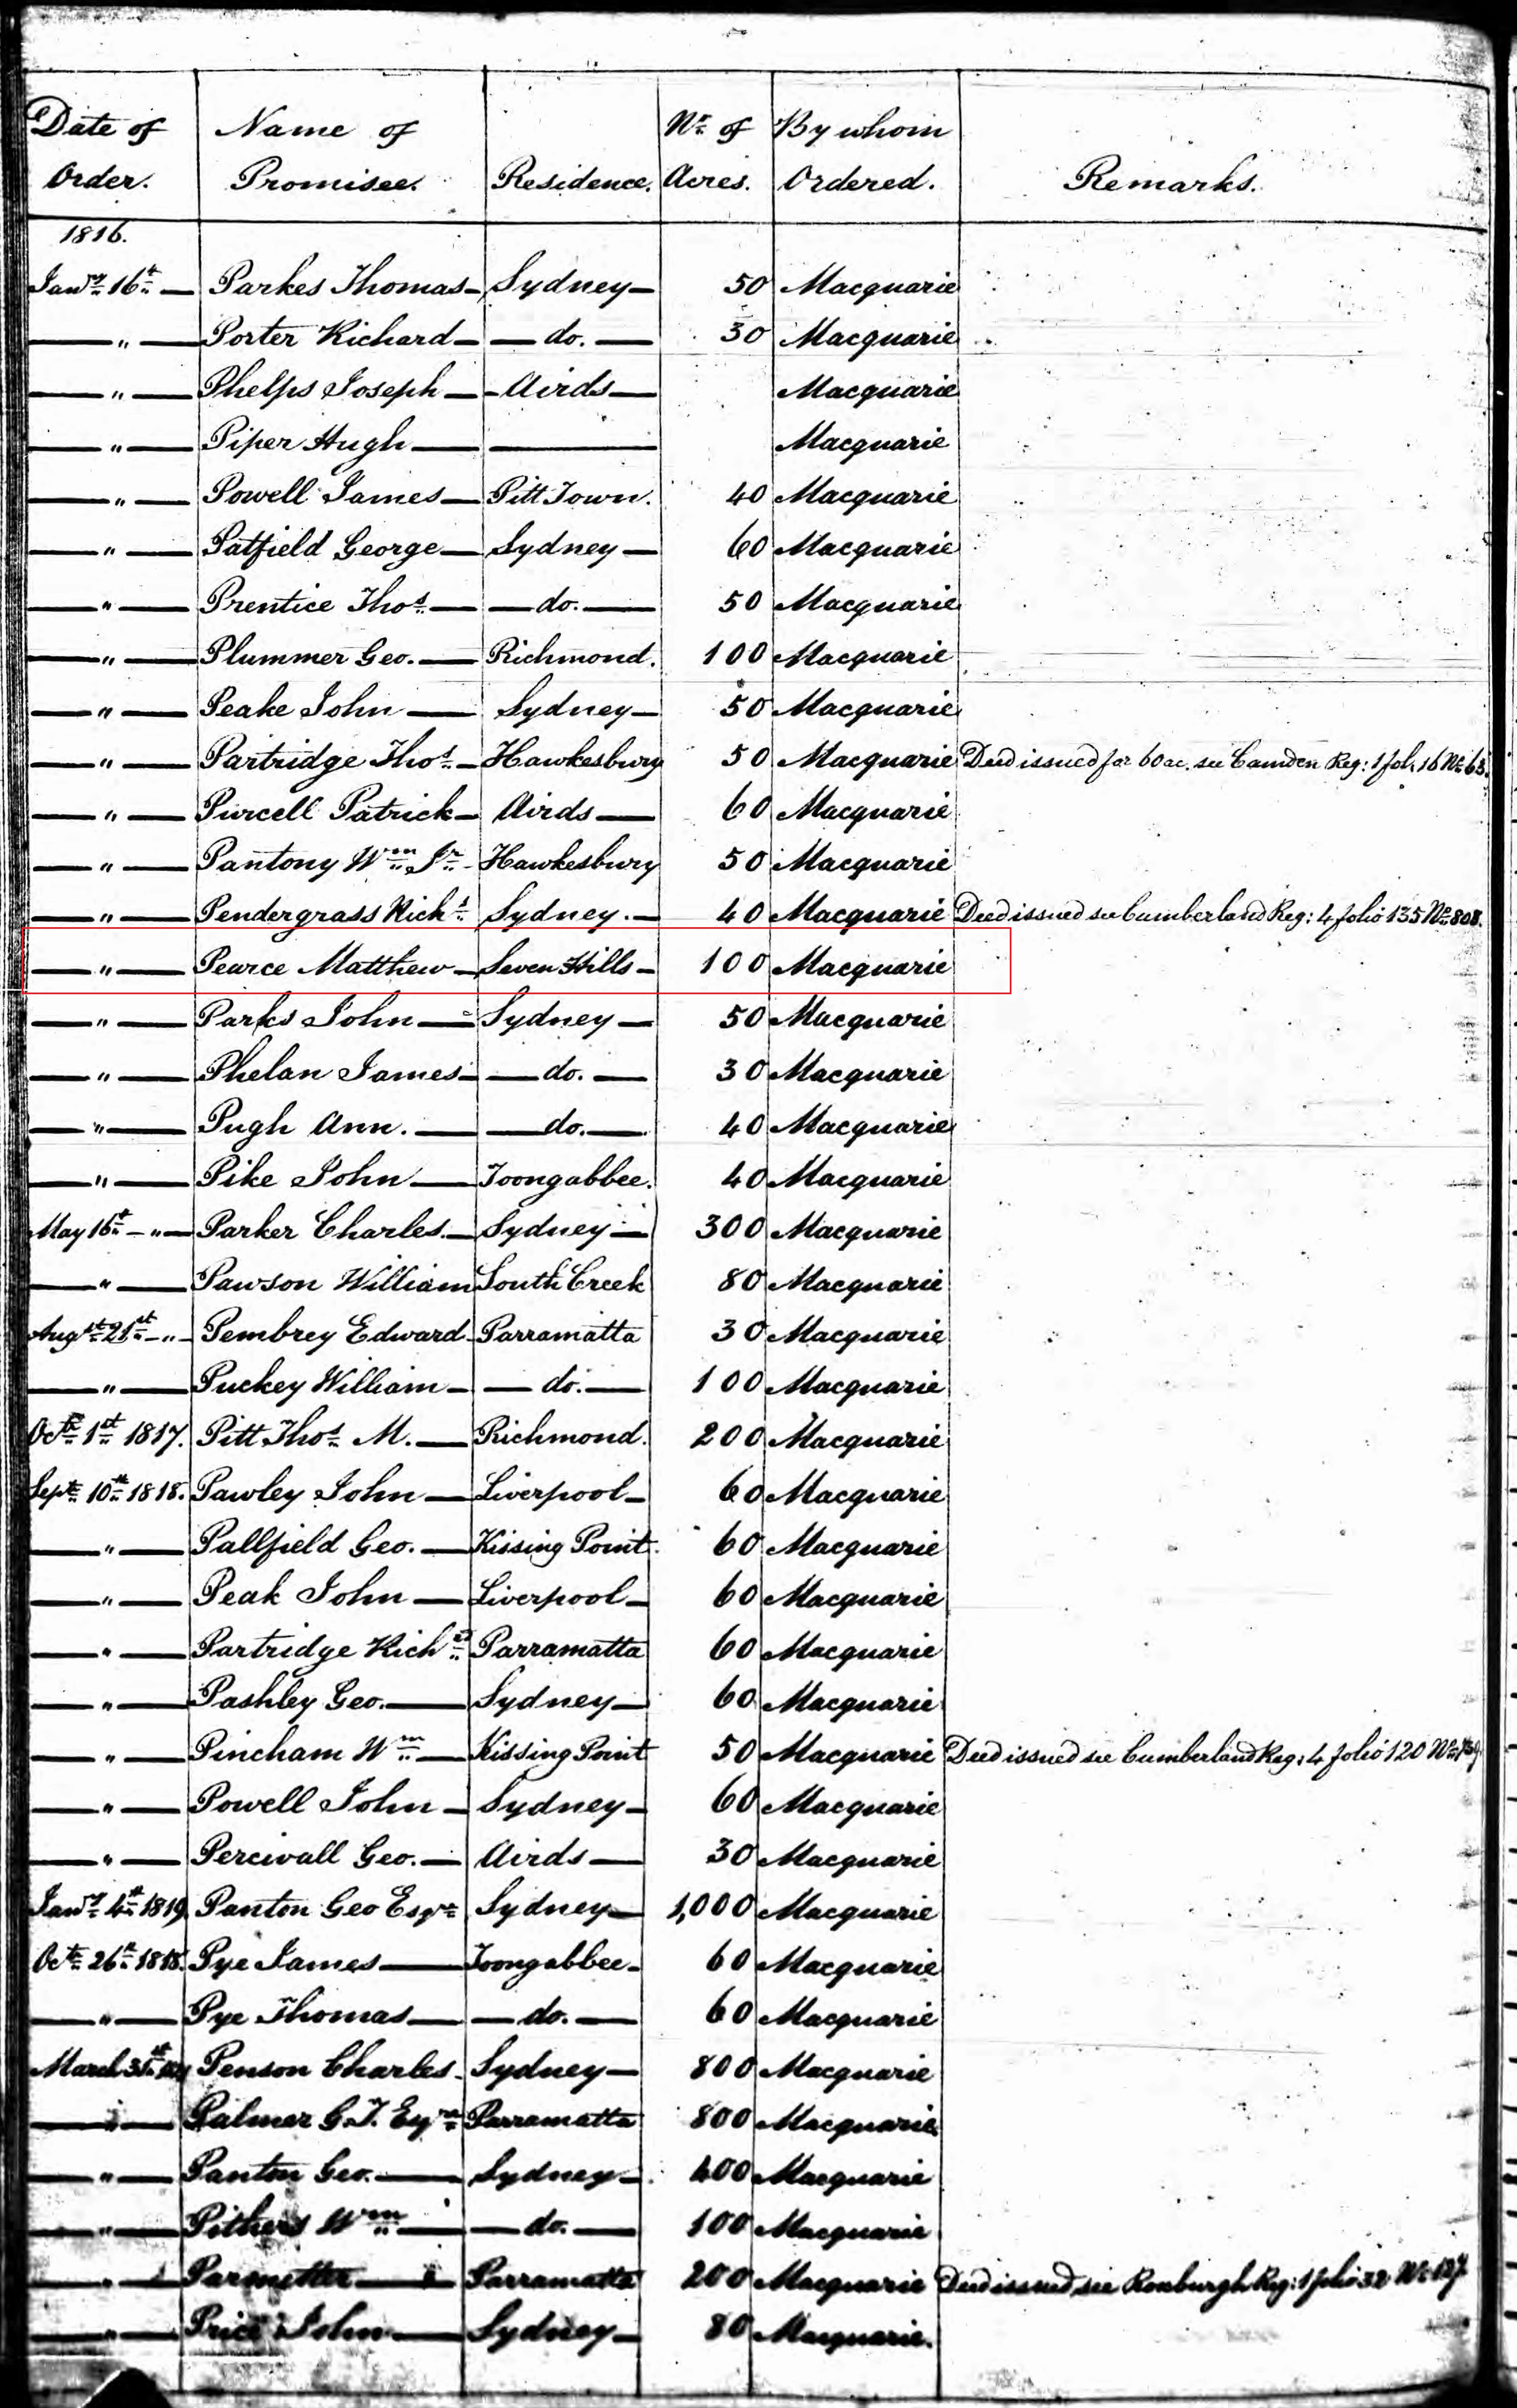 Date of Name of Nr. of By whom
Order. Promisee. Residence. Acres. Ordered. Remarks.
1816.
Jany. 16t. — Parkes Thomas — Sydney — 50 Macquarie
— " — Porter Richard — — do. — 30 Macquarie
— " — Phelps Joseph — - Airds — Macquarie
— " — Piper Hugh — — Macquarie
— " — Powell James — Pitt Town. 40 Macquarie
— " — Patfield George — Sydney — 60 Macquarie
— " — Prentice Thos. — — do. — 50 Macquarie
— " — Plummer Geo. — Richmond. 100 Macquarie
— " — Peake John — Sydney — 50 Macquarie
— " — Partridge Thos. — Hawkesbury 50 Macquarie Deed issued for 60 ac. see Camden Reg: 1 fol: 16 No. 63.
— " — Purcell Patrick — Airds — 60 Macquarie
— " — Pantony Wm. Jr. - Hawkesbury 50 Macquarie
— " — Pendergrass Richd. Sydney. — 40 Macquarie Deed issued see Cumberland Reg: 4 folio 135 No. 808.
— " — Pearce Matthew — Seven Hills — 100 Macquarie
— " — Parks John — Sydney — 50 Macquarie
— " — Phelan James — — do. — 30 Macquarie
— " — Pugh Ann. — — do. — 40 Macquarie
— " — Pike John — Toongabbee. 40 Macquarie
May 16t. - " — Parker Charles. — Sydney — 300 Macquarie
— " — Pawson William South Creek 80 Macquarie
Augst. 21st. - " - Pembrey Edward Parramatta 30 Macquarie
— " — Puckey William — — do. — 100 Macquarie
Octr. 1st. 1817. Pitt Thos. M. — Richmond. 200 Macquarie
Sept. 10t. 1818. Pawley John — Liverpool — 60 Macquarie
— " — Pallfield Geo. — Kissing Point. 60 Macquarie
— " — Peak John — Liverpool — 60 Macquarie
— " — Partridge Richd. Parramatta 60 Macquarie
— " — Pashley Geo. — Sydney — 60 Macquarie
— " — Pincham Wm. — Kissing Point 50 Macquarie Deed issued see Cumberland Reg: 4 folio 120 No.
— " — Powell John — Sydney — 60 Macquarie
— " — Percivall Geo. — Airds — 30 Macquarie
Jany. 4t. 1819. Panton Geo Esqre. Sydney — 1,000 Macquarie
Oct. 26t. 1818. Pye James — Toongabbee — 60 Macquarie
— " — Pye Thomas — — do. — 60 Macquarie
March 31st. Penson Charles - Sydney — 800 Macquarie
— " — Palmer G. T. Esqre. Parramatta 800 Macquarie
— " — Panton Geo. — Sydney — 400 Macquarie
— " — Pithers Wm. — — do. — 100 Macquarie
— " — Parmetter — Parramatta 200 Macquarie Deed issued see Roxburgh Reg: 1 folio 32 No. 127.
— " — Price John — Sydney — 80 Macquarie.